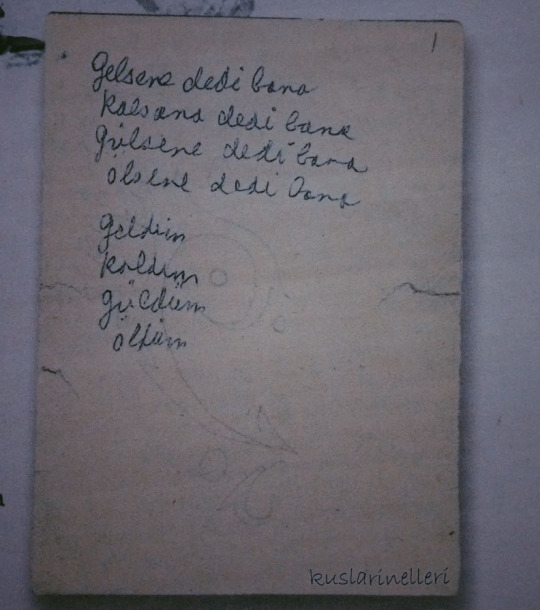 1
Gelsene dedi bana
Kalsana dedi bana
Gülsene dedi bana
ölsene dedi bana
Geldim
Kaldım
güldüm
öldüm
kuslarinelleri